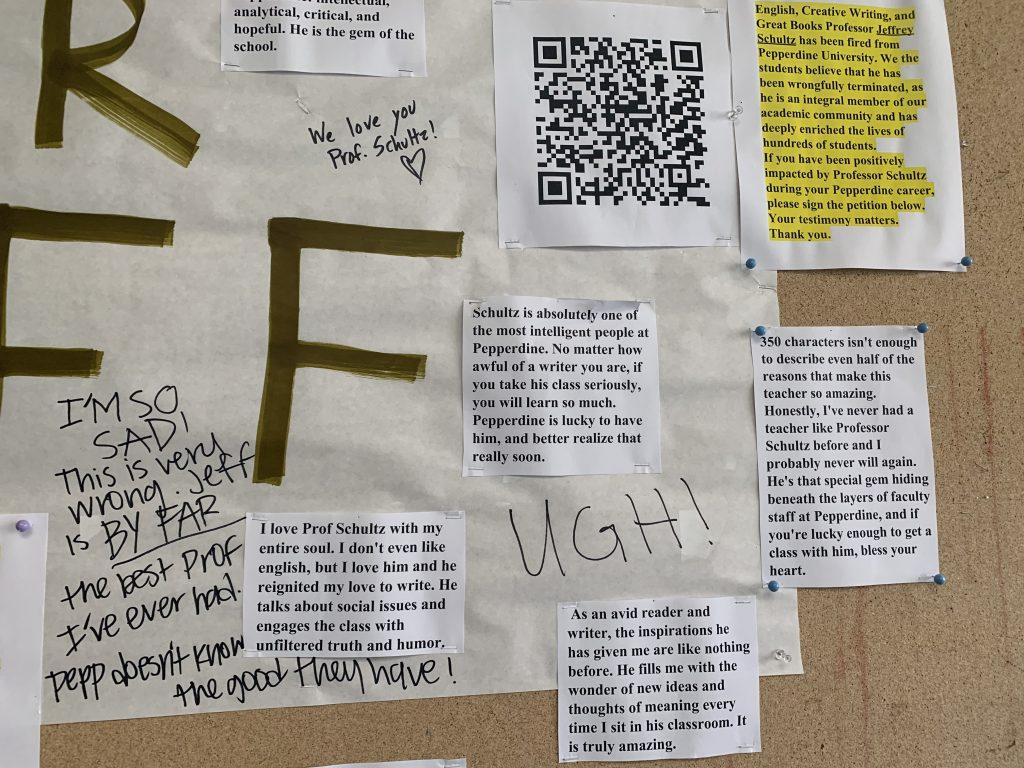 analytical, critical, and
hopeful. He is the gem of the
school.
R
We love you
Prof. Schultz!
F F
English, Creative Writing, and
Great Books Professor Jeffrey
Schultz has been fired from
Pepperdine University. We the
students believe that he has
been wrongfully terminated, as
he is an integral member of our
academic community and has
deeply enriched the lives of
hundreds of students.
If you have been positively
impacted by Professor Schultz
during your Pepperdine career,
please sign the petition below.
Your testimony matters.
Thank you.
Schultz is absolutely one of
the most intelligent people at
Pepperdine. No matter how
awful of a writer you are, if
you take his class seriously,
you will learn so much.
Pepperdine is lucky to have
him, and better realize that
really soon.
350 characters isn't enough
to describe even half of the
reasons that make this
teacher so amazing.
Honestly, I've never had a
teacher like Professor
Schultz before and I
probably never will again.
He's that special gem hiding
beneath the layers of faculty
staff at Pepperdine, and if
you're lucky enough to get a
class with him, bless your
heart.
I'M SO
SAD!
This is very
wrong. Jeff
is BY FAR
the best Prof
I've ever had.
pepp doesn't know
the good they have!
I love Prof Schultz with my
entire soul. I don't even like
english, but I love him and he
reignited my love to write. He
talks about social issues and
engages the class with
unfiltered truth and humor.
UGH!
As an avid reader and
writer, the inspirations he
has given me are like nothing
before. He fills me with the
wonder of new ideas and
thoughts of meaning every
time I sit in his classroom. It
is truly amazing.